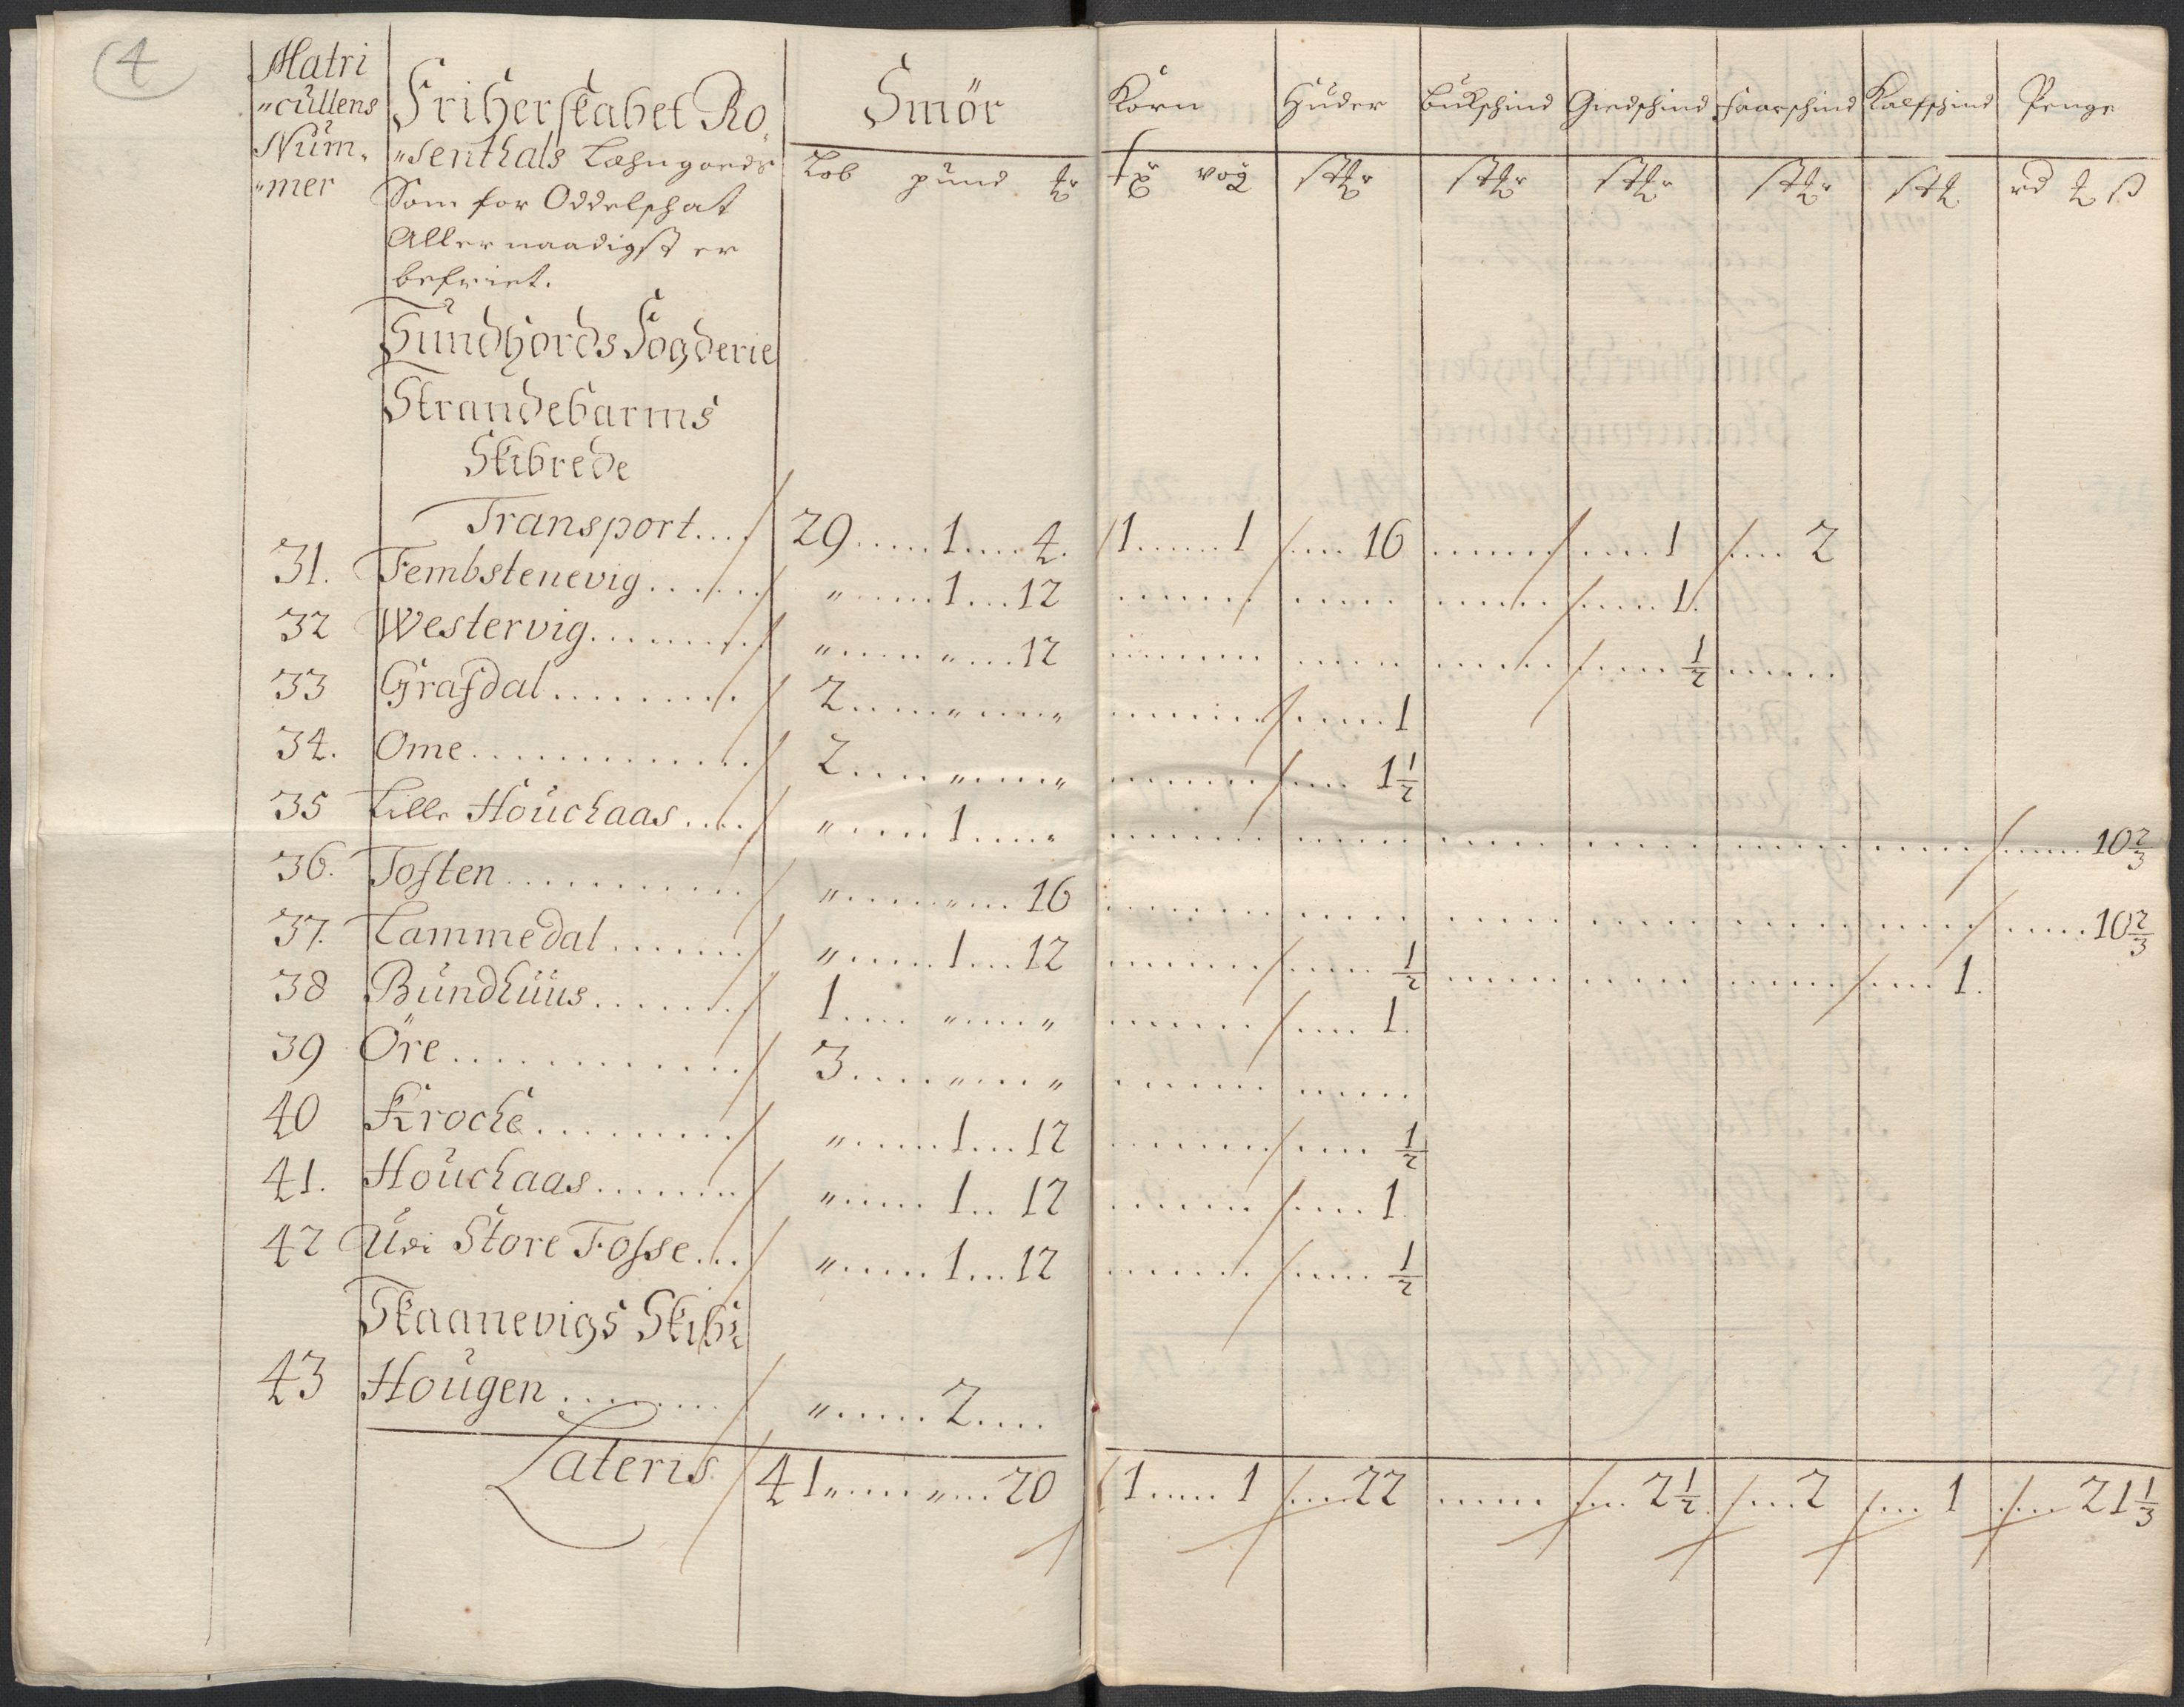 4
Matri
"cullens
Num,
"mer
Friherskabet Ro,
"senthals Læhngoeds
Som for Oddelschat
Allernaadigst er
befriet.
Smör
Lob pund
Korn Huder Bukschind Giedschind Faarschind Kalfschind Penge
vog rd ß
Sundhords Fogderie
Strandebarms
Skibrede
Transport.... 29.....1....4. 1......1 16 1 2
31. Fembstenevig...... "......1...12 1.
32 Westervig........ "......"...12 1/2
33 Grafdal........ 2....."....." 1
34. Ome............ 2....."....." 1 1/2
35 Lille Houchaas.... ".....1....." 10 2/3
36. Tosten........... "......"...16 10 2/3
37. Lammedal....... "......1...12 1/2 1.
38 Bundhuus....... 1...."....." 1.
39 Öre............ 3....."....."
40 Kroche......... "......1...12 1/2
41. Houchaas........ "..... 1.. 12 1
42 Udi Store Fosse... "......1...12 1/2
Skaanevigs Skibr
43 Hougen........ "......2....
Lateris 41....."...20 1.....1 22 2 1/2 2 1 21 1/3